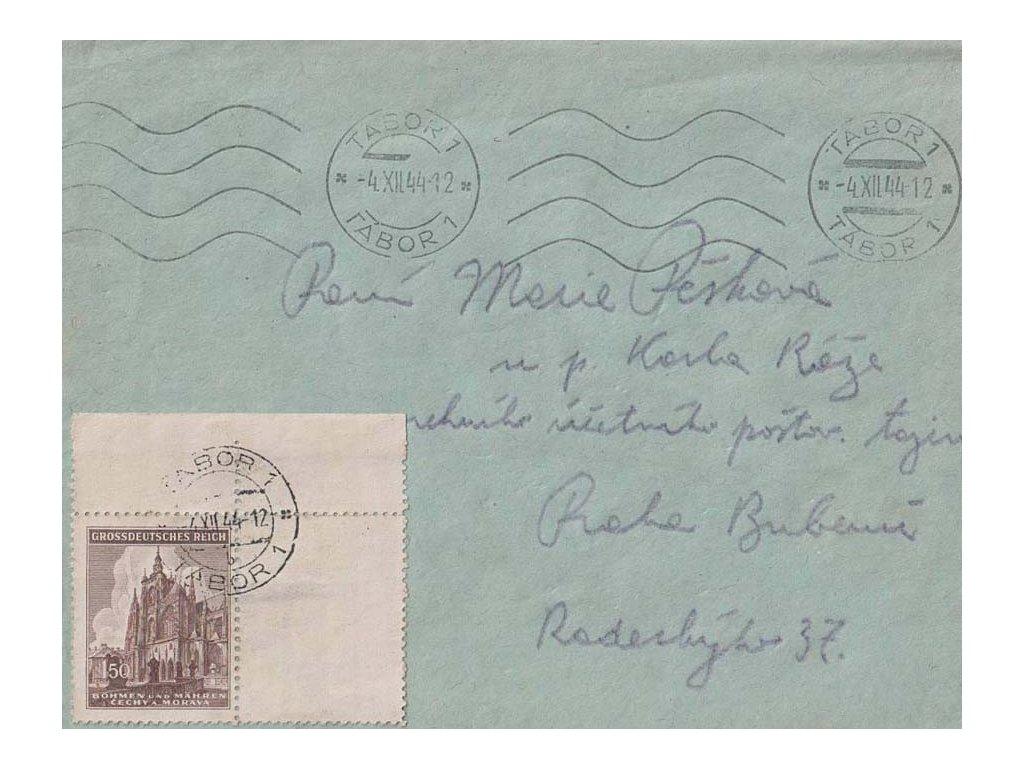 TÁBOR 1
-4.XII.44-12
TÁBOR 1
TÁBOR 1
-4.XII.44-12
TÁBOR 1
Paní Marie Pešková
u p. Karla Róže
účetního poštov. tajem
Praha Bubeneč
Radeckýho 37.
TÁBOR 1
-4.XII.44-12
b
TÁBOR 1
GROSSDEUTSCHES REICH
150
BÖHMEN UND MÄHREN
ČECHY A MORAVA